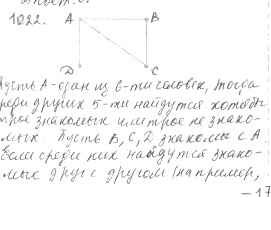 1022.
A B
D C
Пусть A - один из 6-ти человек, тогда
среди других 5-ти найдутся хотя бы
трое знакомых или трое не знако-
мых. Пусть B, C, D знакомы с A
Если среди них найдутся знако-
мые друг с другом (например,
- 17